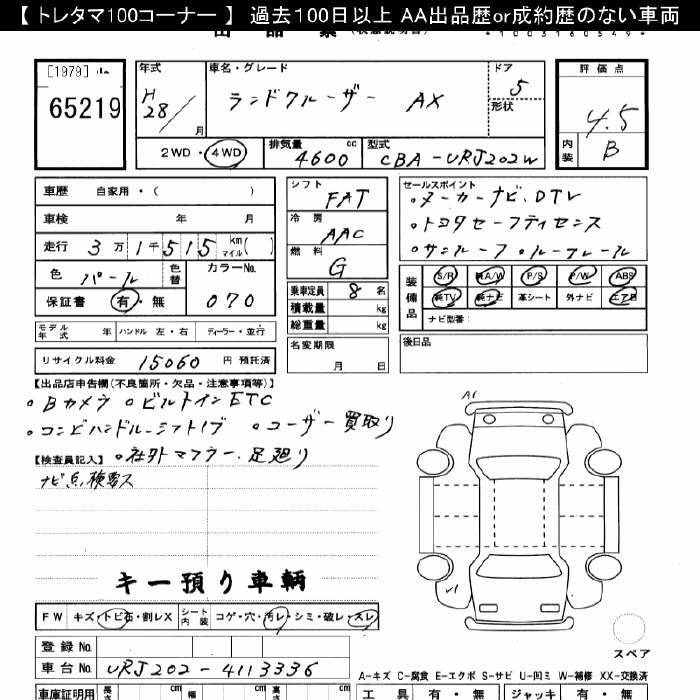 【 トレタマ100コーナー 】 過去100日以上 AA出品歴or成約歴のない車両
[1979]
65219
年式
H28/ 月
車名・グレード
ランドクルーザー AX
ドア 5
形状
評価点
4.5
内装 B
2WD・4WD
排気量 4600 cc
型式 CBA-URJ202W
車歴 自家用・( )
車検 年 月
走行 3万1千515 km マイル( )
色 パール 色替
カラーNo. 070
保証書 有・無
モデル年式 年 ハンドル 左・右 ディーラー・並行
リサイクル料金 15060 円 預託済
シフト FAT
冷房 AAC
燃料 G
乗車定員 8 名
積載量 kg
総重量 kg
名変期限 月 日
セールスポイント
・メーカーナビ.DTV
・トヨタセーフティセンス
・サンルーフ・ルーフレール
装備品 S/R 純A/W P/S P/W ABS
純TV 純ナビ 革シート 外ナビ エアB
ナビ型番:
後日品
【出品店申告欄(不良箇所・欠品・注意事項等)】
・Bカメラ ・ビルトインETC
・コンビハンドル-シフトノブ ・ユーザー買取り
・社外マフラー.足廻り
【検査員記入】
キー預り車輌
FW キズ・トビ石・割レX シート内装 コゲ・穴・汚レ・シミ・破レ・スレ
登録No.
車台No. URJ202-4113336
車庫証明用 長さ cm 幅 cm 高さ cm
A1
スペア
A-キズ C-腐食 E-エクボ S-サビ U-凹ミ W-補修 XX-交換済
工具 有・無 ジャッキ 有・無